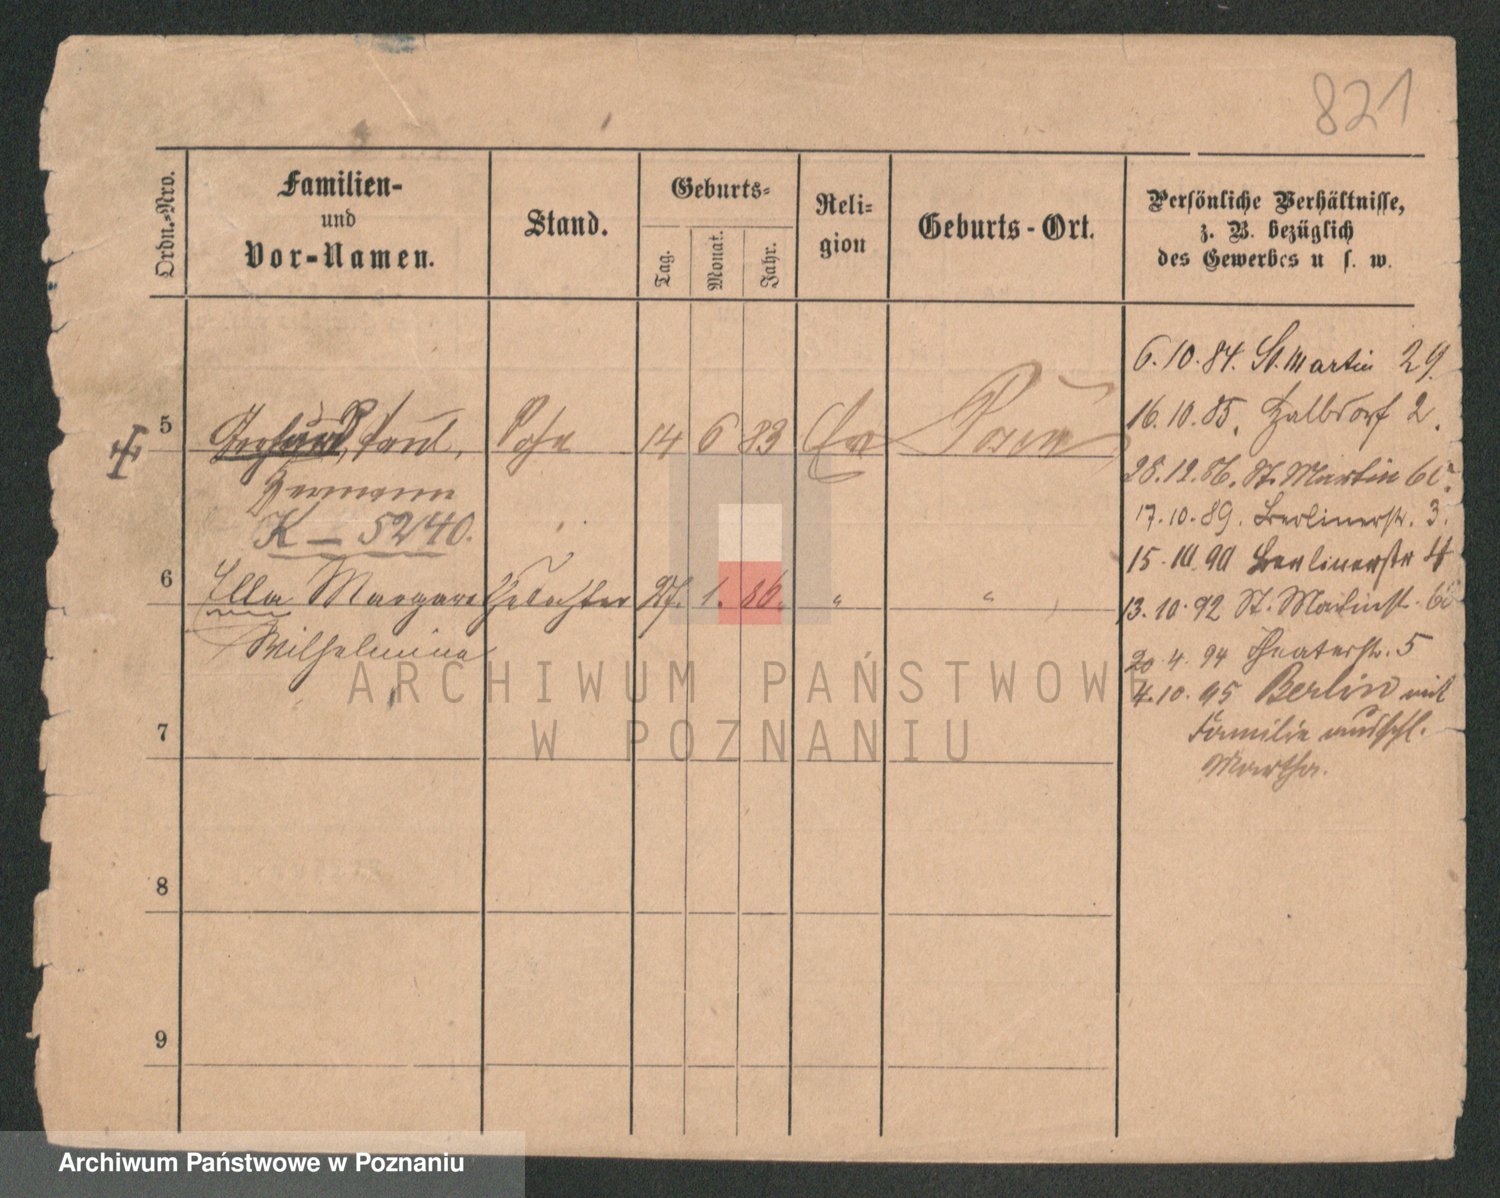 821
Ordn.-Nro.
Familien-
und
Vor-Namen.
Stand.
Geburts-
Tag.
Monat.
Jahr.
Reli-
gion
Geburts-Ort.
Persönliche Verhältnisse,
z. B. bezüglich
des Gewerbes u s. w.
6.10.84. St. Martin 29.
5
Gerhard, Paul, Sohn 14 6 83 Ev Posen
16.10.85. Halbdorf 2.
Hermann
28.12.86. St. Martin
K – 5240.
17.10.89. Berlinerstr. 3.
15.10.90 Berlinerstr 4
6
Ella Margarethe Tochter 27. 1. 86. " "
13.10.92 St. Martinst.
Wilhelmine
20.4.94 Theaterstr. 5
4.10.95 Berlin mit
Familie ausschl.
Martha.
7
8
9
ARCHIWUM PAŃSTWOWE
W POZNANIU
Archiwum Państwowe w Poznaniu